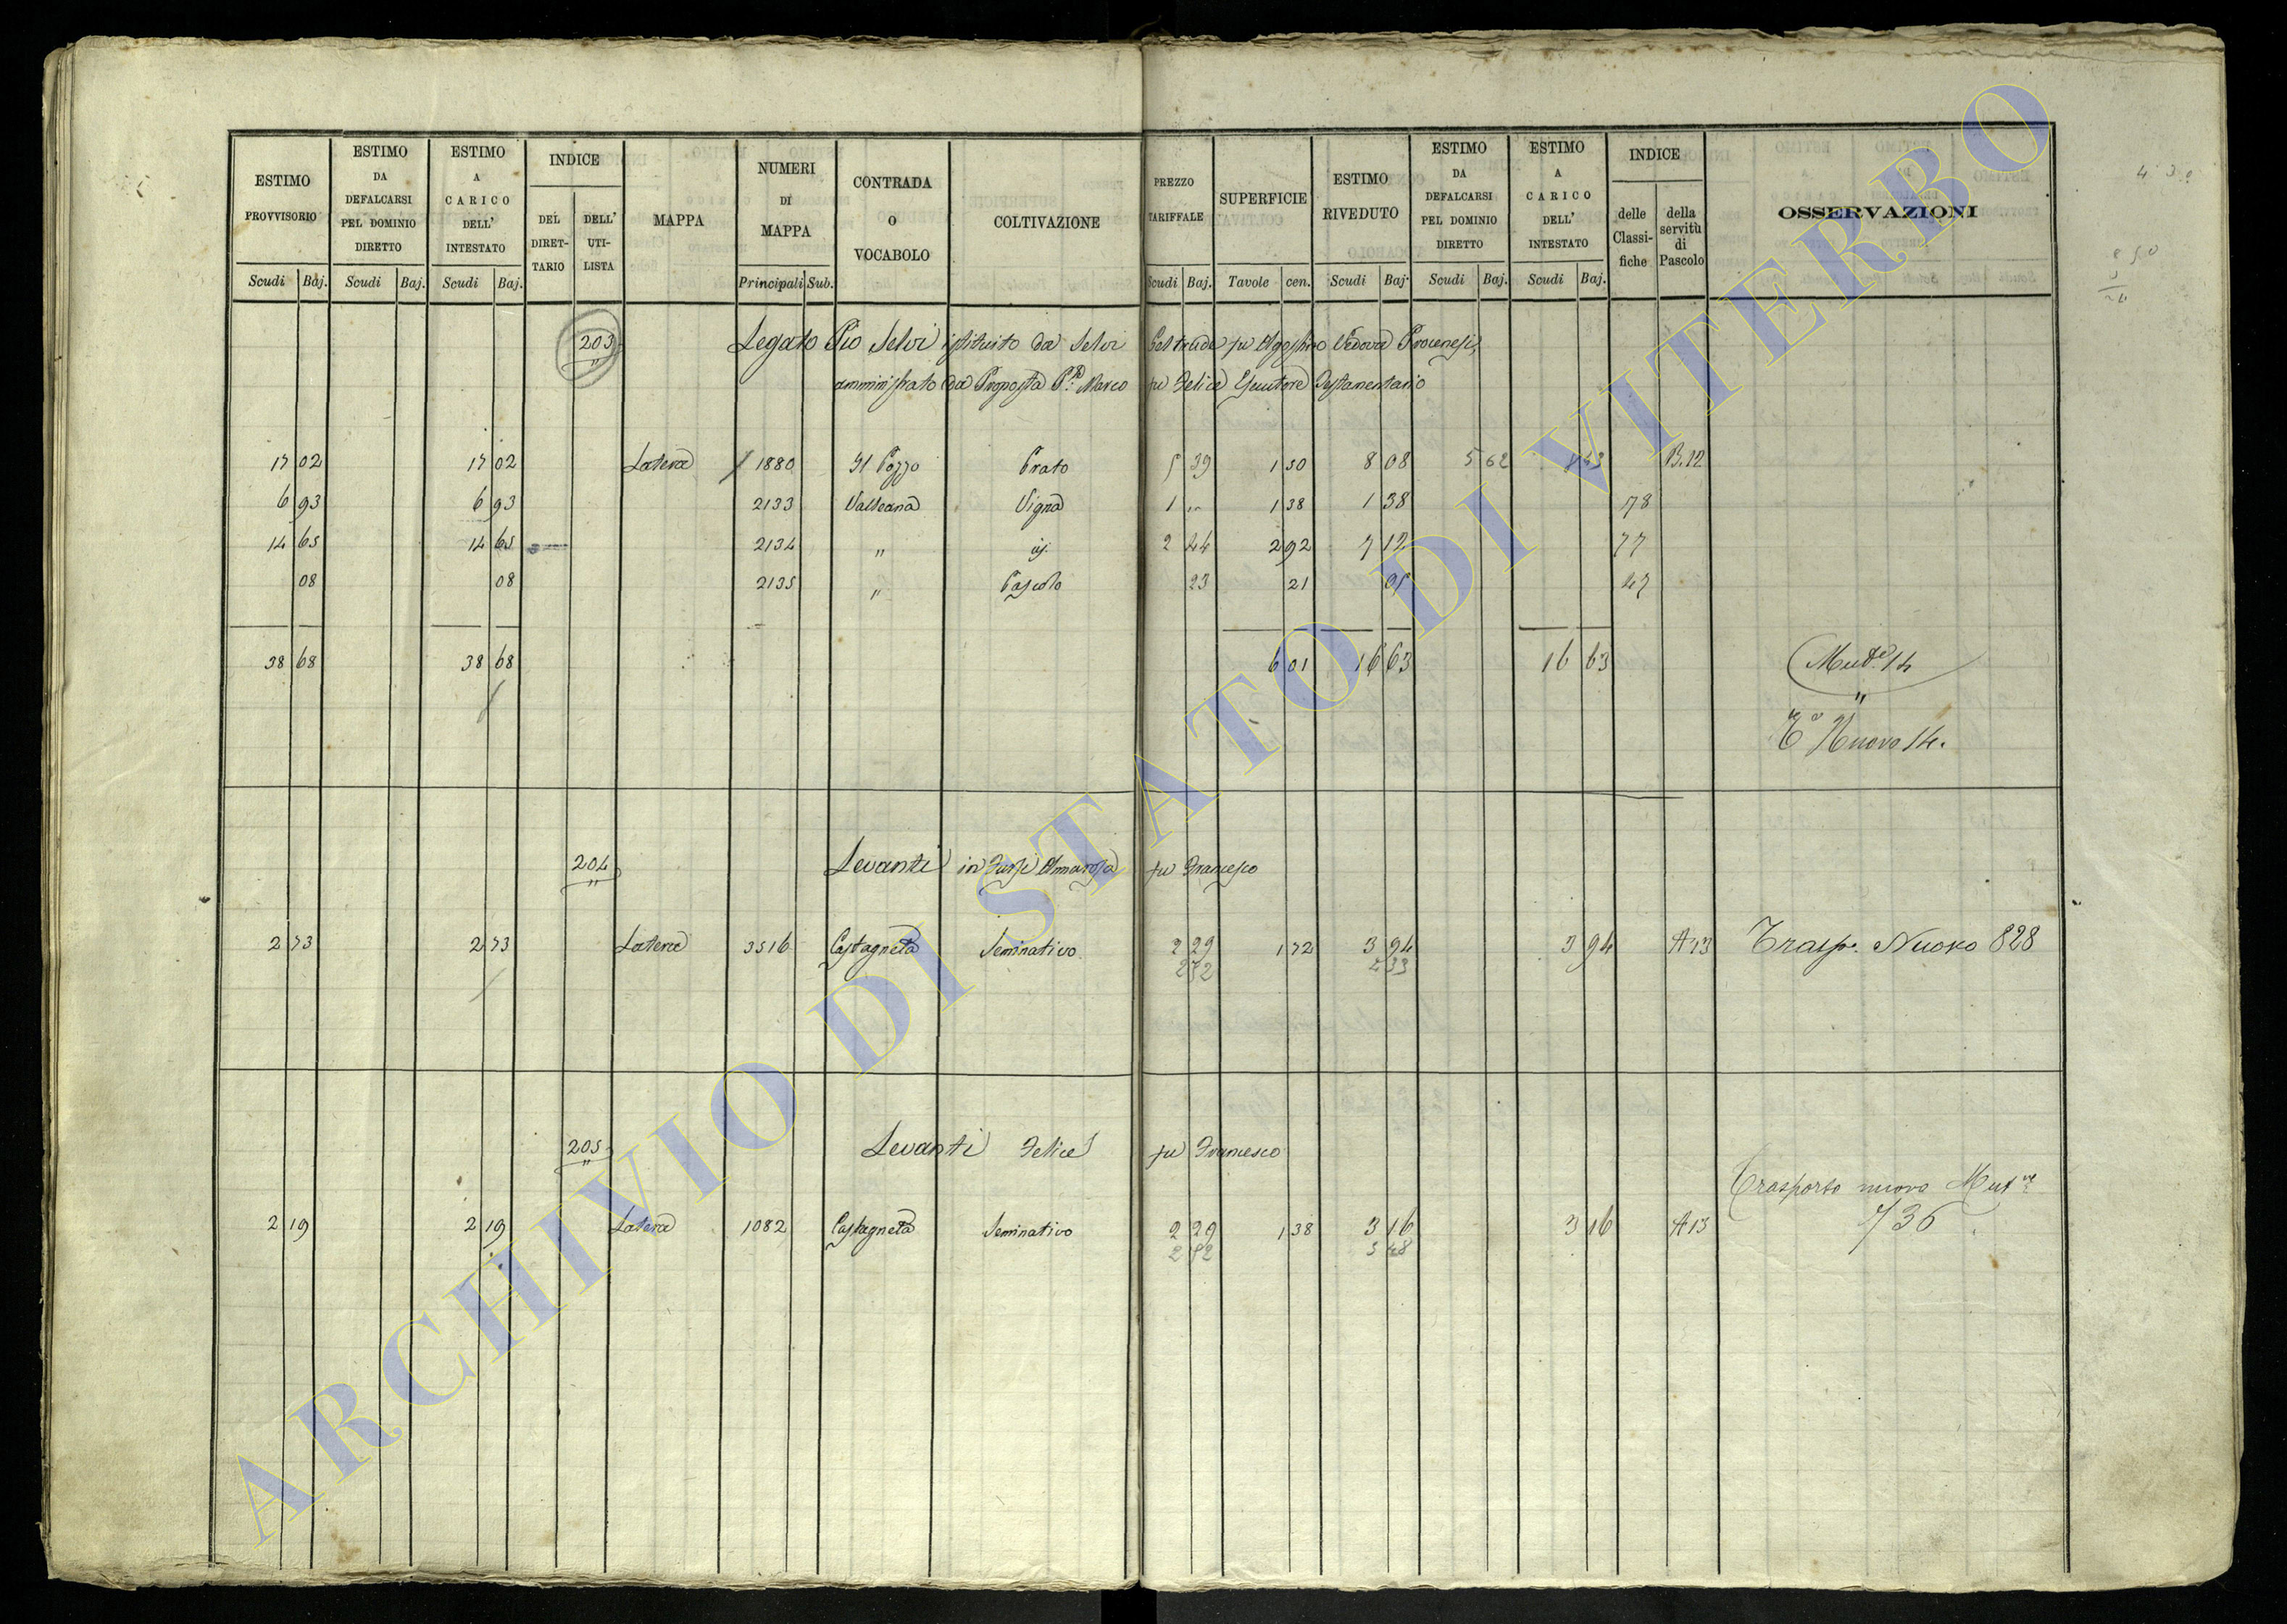 ESTIMO PROVVISORIO | ESTIMO DA DEFALCARSI PEL DOMINIO DIRETTO | ESTIMO A CARICO DELL' INTESTATO | INDICE | MAPPA | NUMERI DI MAPPA | CONTRADA O VOCABOLO | COLTIVAZIONE | PREZZO TARIFFALE | SUPERFICIE | ESTIMO RIVEDUTO | ESTIMO DA DEFALCARSI PEL DOMINIO DIRETTO | ESTIMO A CARICO DELL' INTESTATO | INDICE | OSSERVAZIONI
DEL DIRETTARIO | DELL' UTILISTA | delle Classifiche | della servitù di Pascolo
Scudi | Baj. | Scudi | Baj. | Scudi | Baj. | Principali | Sub. | Scudi | Baj. | Tavole | cen. | Scudi | Baj. | Scudi | Baj. | Scudi | Baj.
203 Legato Pio Selvi istituito da Selvi Geltrude fu Agostino Vedova Procenesi,
amministrato da Proposta Marco fu Felice Esecutore Testamentario
17 02 | 17 02 | Latera | 1880 | Il Pozzo | Prato | 5 39 | 1 50 | 8 08 | 5 62 | B.12
6 93 | 6 93 | 2133 | Valteana | Vigna | 1 " | 1 38 | 1 38 | 78
14 65 | 14 65 | 2134 | " | id. | 2 44 | 2 92 | 7 12 | 77
08 | 08 | 2135 | " | Pascolo | 23 | 21 | 05 | 47
38 68 | 38 68 | 6 01 | 16 63 | 16 63 | 14
"
Nuovo 14.
204 Levanti in Amarosa fu Francesco
2 73 | 2 73 | Latera | 3516 | Castagneta | Seminativo | 2 29 | 1 72 | 3 94 | 3 94 | A 13 | Trasp. Nuovo 828
2 52 | 4 33
205 Levanti Felice fu Francesco
Trasporto nuovo
2 19 | 2 19 | Latera | 1082 | Castagneta | Seminativo | 2 29 | 1 38 | 3 16 | 3 16 | A 13 | 736
2 52 | 3 48
ARCHIVIO DI STATO DI VITERBO